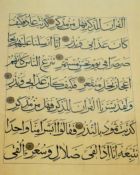 القرآن للذكر فهل من مدكر كذبت عاد فكيف
كان عذابي ونذر إنا أرسلنا عليهم ريحا
صرصرا في يوم نحس مستمر تنزع الناس كأنهم
أعجاز نخل منقعر فكيف كان عذابي ونذر
ولقد يسرنا القرآن للذكر فهل من مدكر
كذبت ثمود بالنذر فقالوا أبشرا منا واحدا
نتبعه إنا إذا لفي ضلال وسعر أألقي